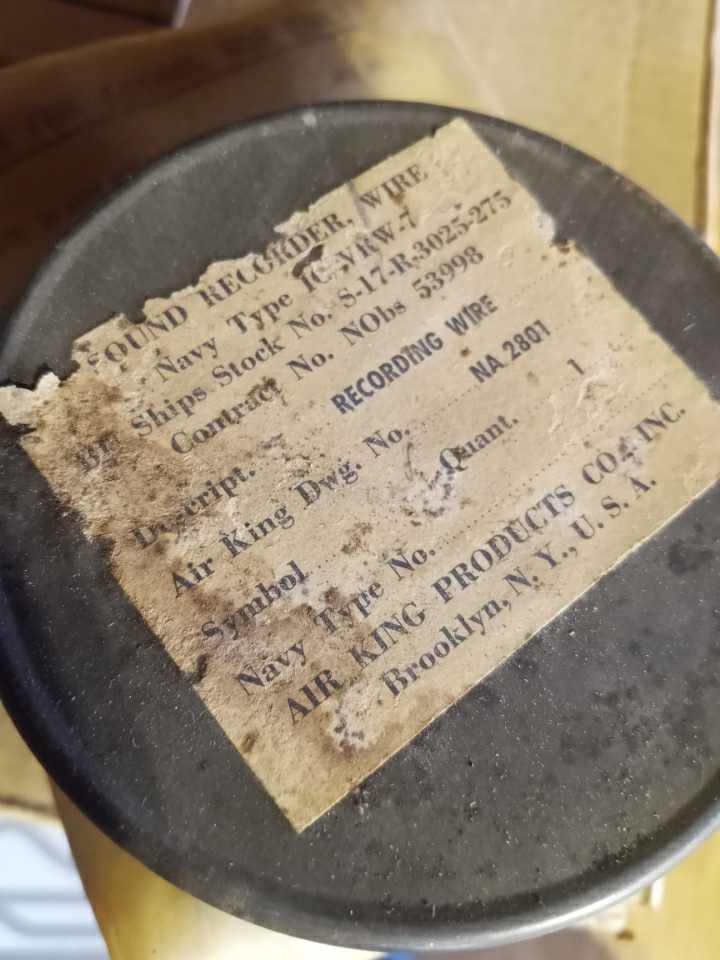 SOUND RECORDER, WIRE
Navy Type IC/VRW-7
Ships Stock No. S-17-R-3025-275
Contract No. NObs 53998
Descript. RECORDING WIRE
Air King Dwg. No. NA 2801
Symbol Quant. 1
Navy Type No.
AIR KING PRODUCTS CO., INC.
Brooklyn, N. Y., U. S. A.